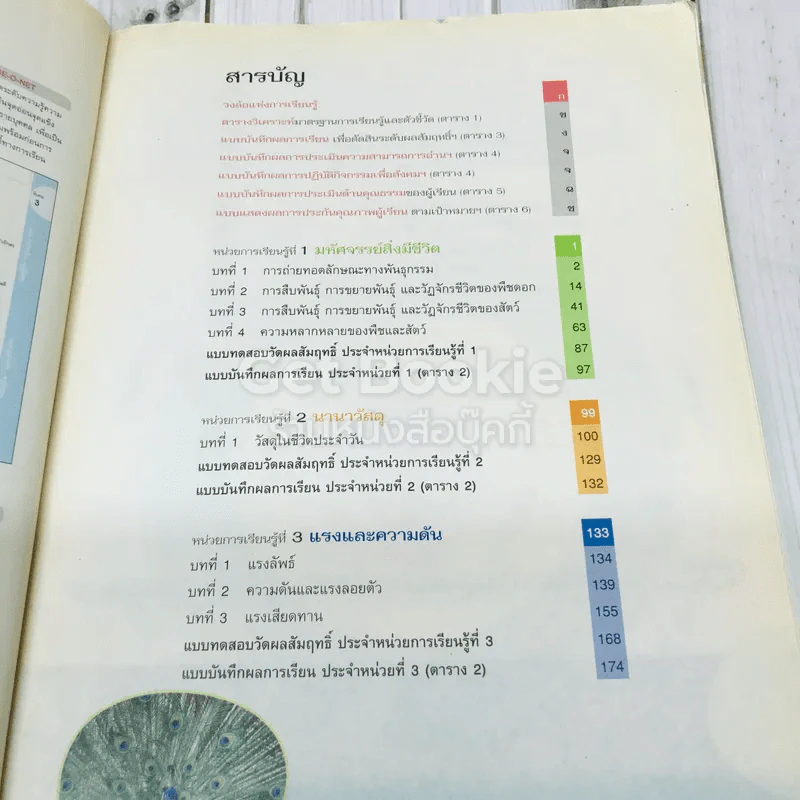 E-O-NET
สารบัญ
วงล้อแห่งการเรียนรู้ ก
ตารางวิเคราะห์มาตรฐานการเรียนรู้และตัวชี้วัด (ตาราง 1) ข
แบบบันทึกผลการเรียน เพื่อตัดสินระดับผลสัมฤทธิ์ฯ (ตาราง 3) ง
แบบบันทึกผลการประเมินความสามารถการอ่านฯ (ตาราง 4) จ
แบบบันทึกผลการปฏิบัติกิจกรรมเพื่อสังคมฯ (ตาราง 4) จ
แบบบันทึกผลการประเมินด้านคุณธรรมของผู้เรียน (ตาราง 5) ฉ
แบบแสดงผลการประกันคุณภาพผู้เรียน ตามเป้าหมายฯ (ตาราง 6) ช
หน่วยการเรียนรู้ที่ 1 มหัศจรรย์สิ่งมีชีวิต 1
บทที่ 1 การถ่ายทอดลักษณะทางพันธุกรรม 2
บทที่ 2 การสืบพันธุ์ การขยายพันธุ์ และวัฏจักรชีวิตของพืชดอก 14
บทที่ 3 การสืบพันธุ์ การขยายพันธุ์ และวัฏจักรชีวิตของสัตว์ 41
บทที่ 4 ความหลากหลายของพืชและสัตว์ 63
แบบทดสอบวัดผลสัมฤทธิ์ ประจำหน่วยการเรียนรู้ที่ 1 87
แบบบันทึกผลการเรียน ประจำหน่วยที่ 1 (ตาราง 2) 97
Get Bookie
ร้านหนังสือบุ๊คกี้
หน่วยการเรียนรู้ที่ 2 นานาวัสดุ 99
บทที่ 1 วัสดุในชีวิตประจำวัน 100
แบบทดสอบวัดผลสัมฤทธิ์ ประจำหน่วยการเรียนรู้ที่ 2 129
แบบบันทึกผลการเรียน ประจำหน่วยที่ 2 (ตาราง 2) 132
หน่วยการเรียนรู้ที่ 3 แรงและความดัน 133
บทที่ 1 แรงลัพธ์ 134
บทที่ 2 ความดันและแรงลอยตัว 139
บทที่ 3 แรงเสียดทาน 155
แบบทดสอบวัดผลสัมฤทธิ์ ประจำหน่วยการเรียนรู้ที่ 3 168
แบบบันทึกผลการเรียน ประจำหน่วยที่ 3 (ตาราง 2) 174